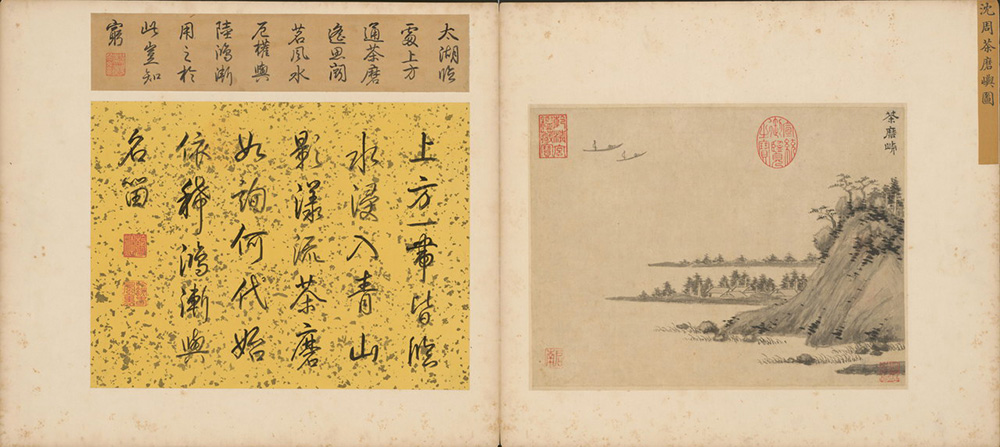 沈周茶磨嶼圖
茶磨嶼
太湖臨
處上方
通茶磨
遙思鬪
茗風水
厄權輿
陸鴻漸
用之於
此豈知
窮
上方一帶皆臨
水浸入青山
影漾流茶磨
如詢何代始
依稀鴻漸與
名留